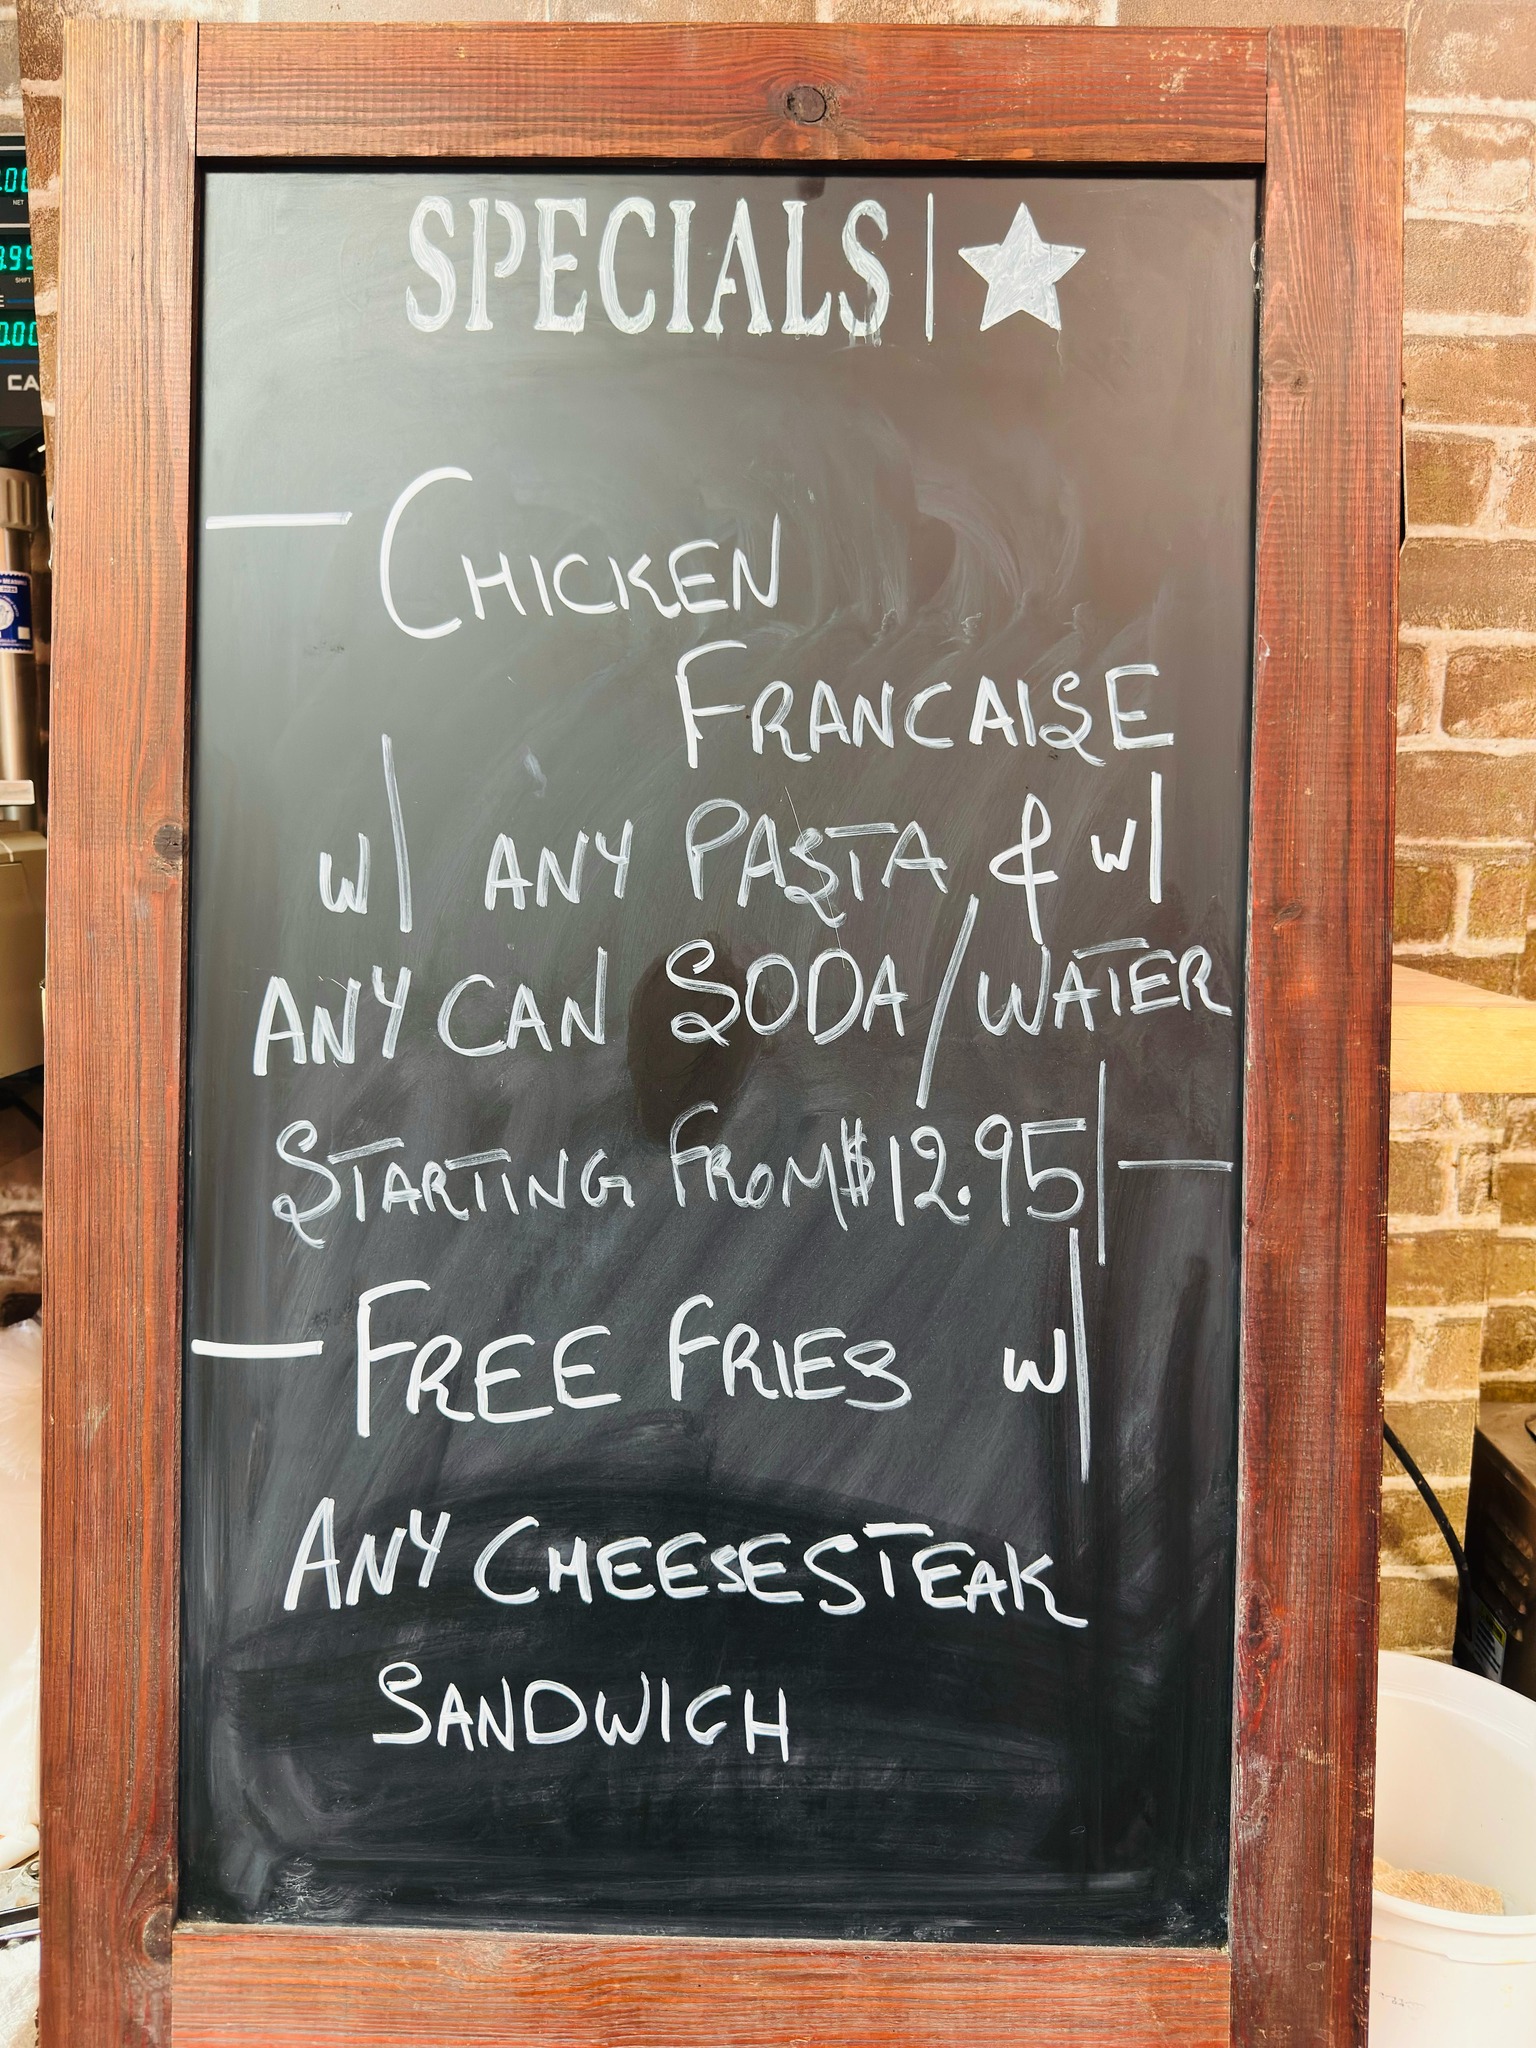 SPECIALS | ★
— CHICKEN
FRANCAISE
w/ ANY PASTA & w/
ANY CAN SODA/WATER
STARTING FROM $12.95 | —
— FREE FRIES w/
ANY CHEESESTEAK
SANDWICH
NET
SHIFT
CA